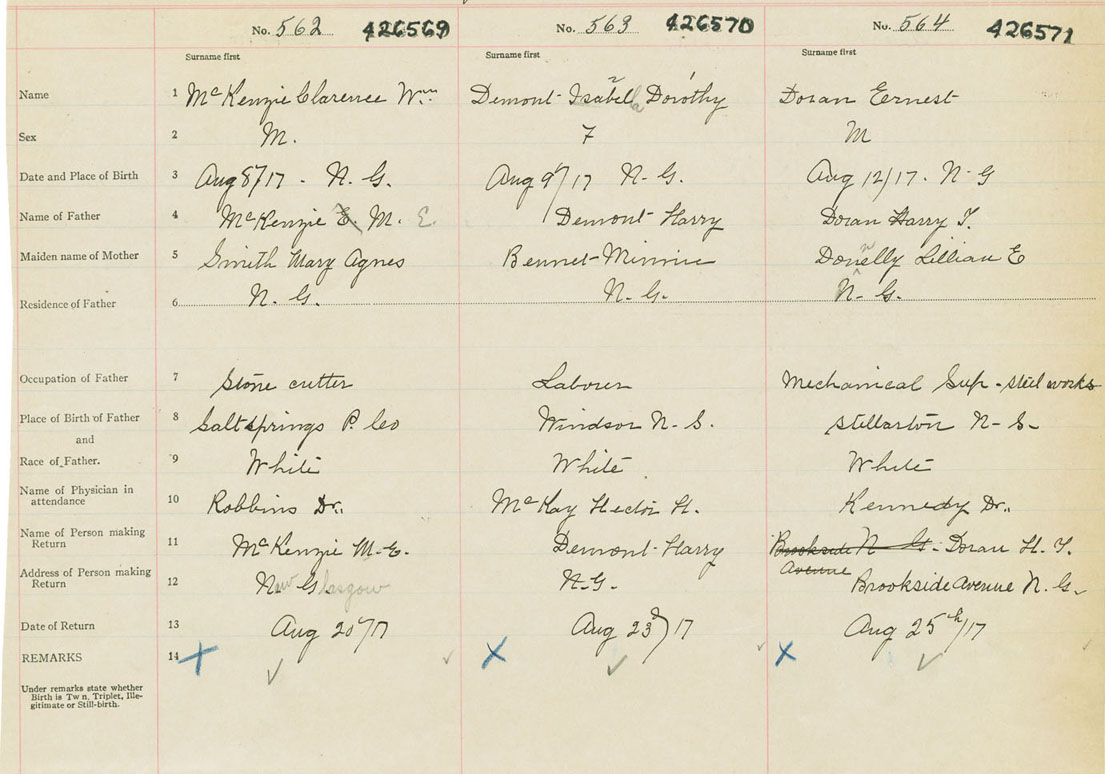 No. 562 426569 No. 563 426570 No. 564 426571
Surname first Surname first Surname first
Name 1 McKenzie Clarence Wm. Demont Isabella Dorothy Doran Ernest
Sex 2 M. F M
Date and Place of Birth 3 Aug 8/17 - N. G. Aug 9/17 N-G. Aug 12/17. N-G
Name of Father 4 McKenzie E. M. E. Demont Harry Doran Harry T.
Maiden name of Mother 5 Smith Mary Agnes Bennet-Minnie Donnelly Lillian E
Residence of Father 6 N. G. N-G. N-G.
Occupation of Father 7 Stone cutter Laborer Mechanical Sup-steel works
Place of Birth of Father 8 Saltsprings P. Co Windsor N-S. Stellarton N-S-
and
Race of Father. 9 White White White
Name of Physician in
attendance 10 Robbins Dr. McKay Hector H. Kennedy Dr.
Name of Person making
Return 11 McKenzie M-E. Demont-Harry Brookside N-G-Doran H. T.
Avenue
Address of Person making
Return 12 New Glasgow N-G. Brookside Avenue N. G.
Date of Return 13 Aug 20/17 Aug 23d/17 Aug 25th/17
REMARKS 14
Under remarks state whether
Birth is Tw n, Triplet, Ille-
gitimate or Still-birth.